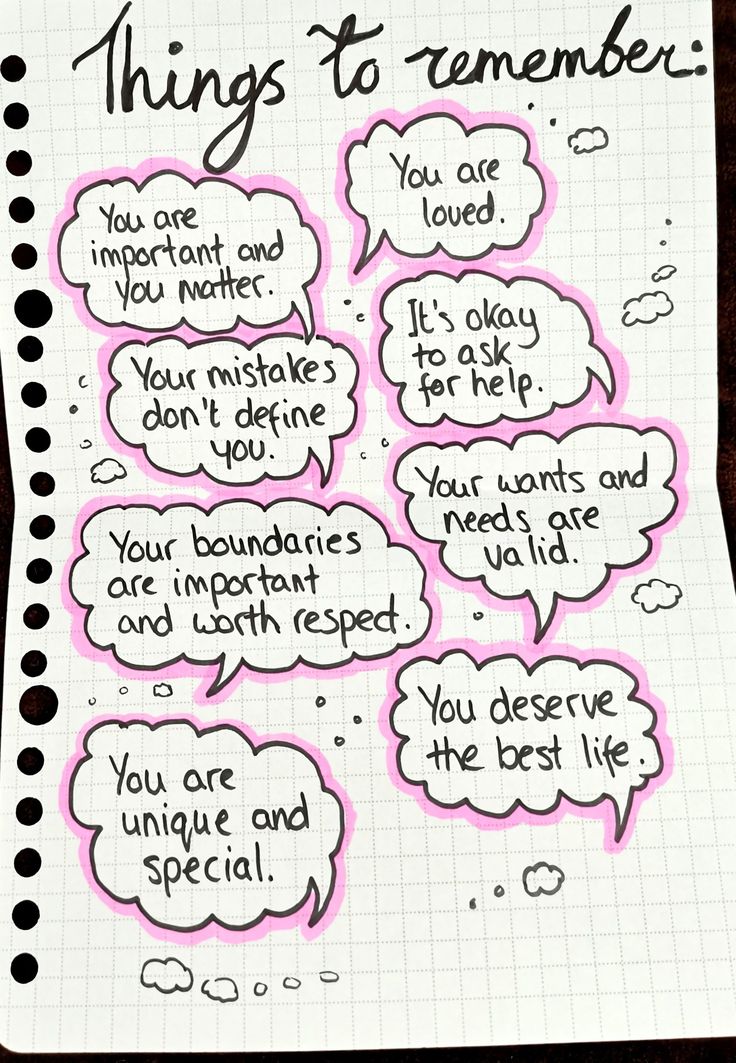 Things to remember:
You are
loved.
You are
important and
you matter.
It's okay
to ask
for help.
Your mistakes
don't define
you.
Your wants and
needs are
valid.
Your boundaries
are important
and worth respect.
You deserve
the best life.
You are
unique and
special.